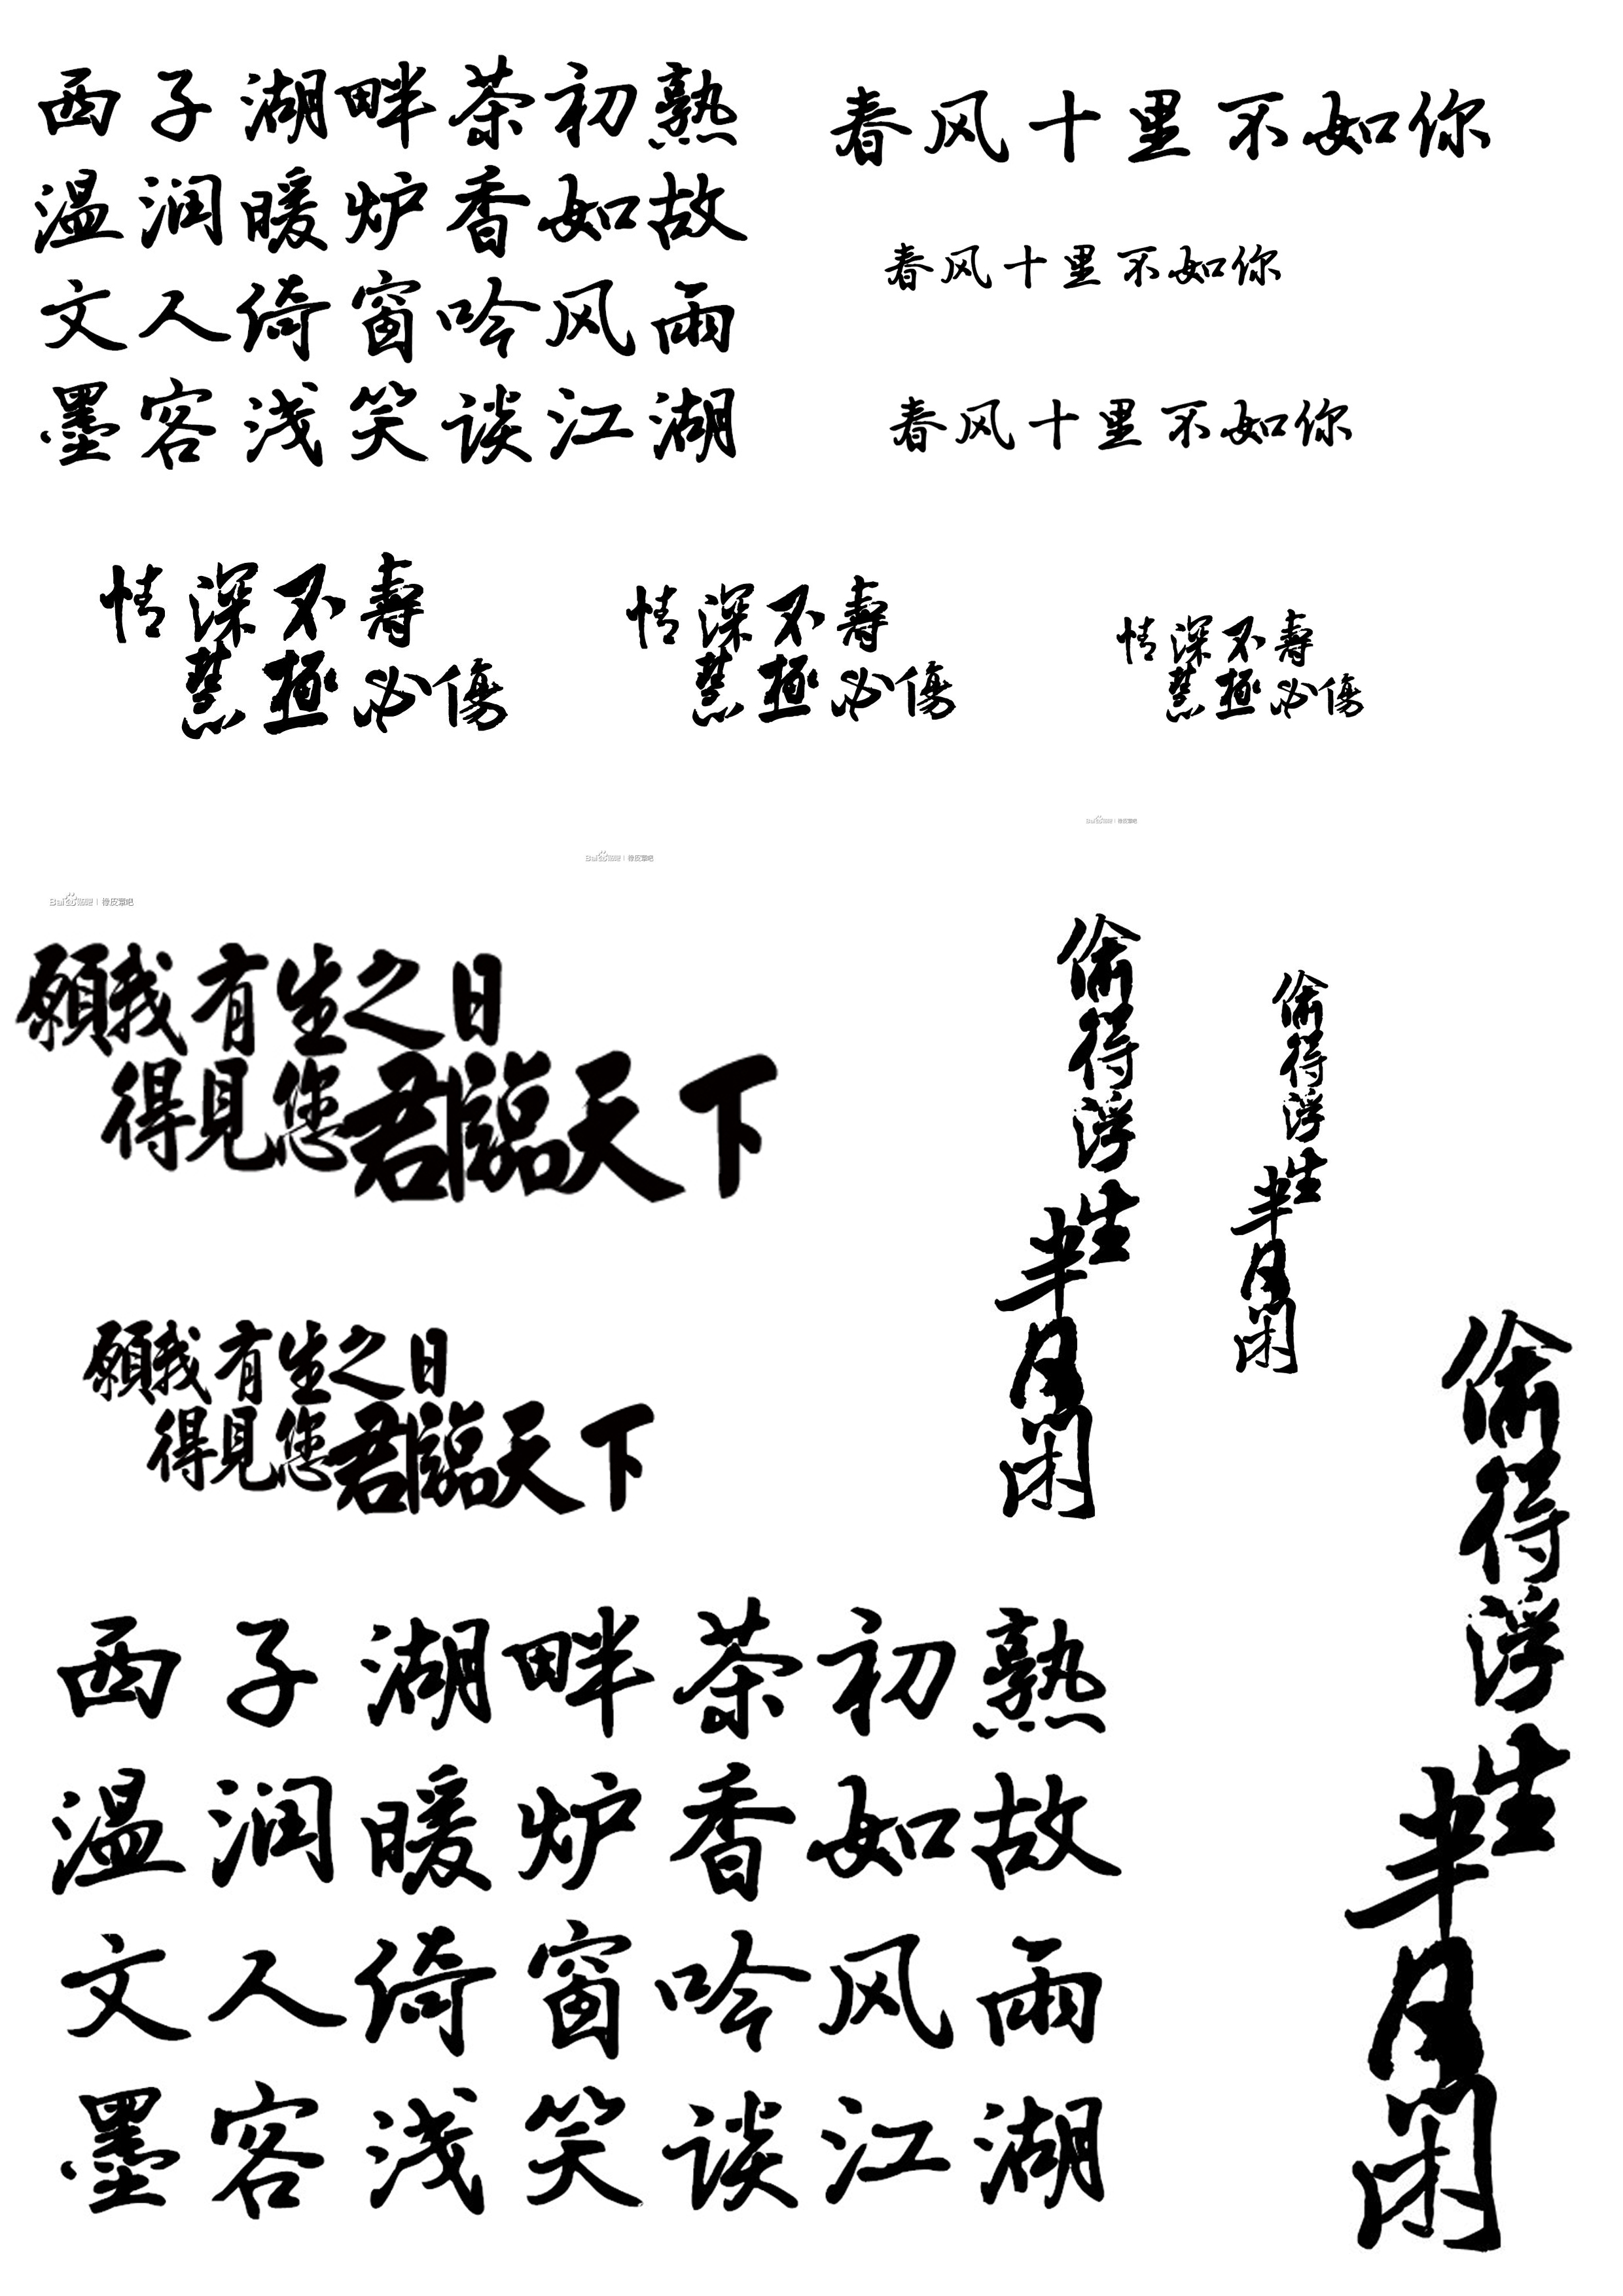 西子湖畔茶初熟
温润暖炉香如故
文人倚窗吟风雨
墨客浅笑谈江湖
春风十里不如你
春风十里不如你
春风十里不如你
情深不壽
慧極必傷
情深不壽
慧極必傷
情深不壽
慧極必傷
Bai贴吧 | 橡皮章吧
Bai贴吧 | 橡皮章吧
Bai贴吧 | 橡皮章吧
願我有生之日
得見您君臨天下
願我有生之日
得見您君臨天下
偷得浮生半日闲
偷得浮生半日闲
偷得浮生半日闲
西子湖畔茶初熟
温润暖炉香如故
文人倚窗吟风雨
墨客浅笑谈江湖